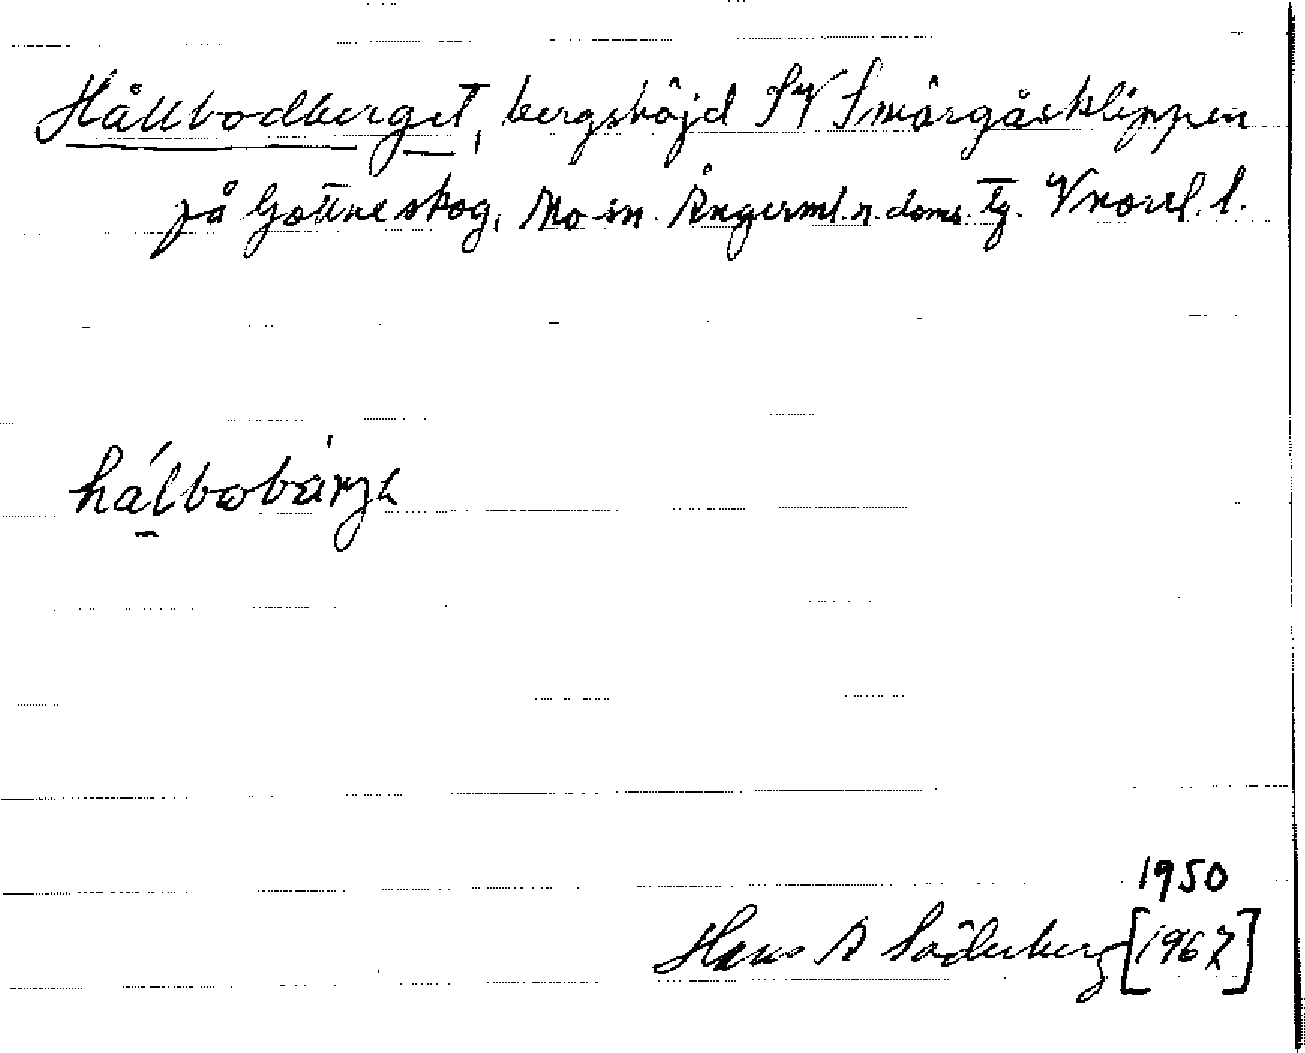 Hållbodberget, bergshöjd SV Smörgåsklippen
på Gottneskog, Mo sn. Ångerml. n. doms. tg. Vnorrl. l.
hálbobárjə
1950
Hans A Söderberg [1967]